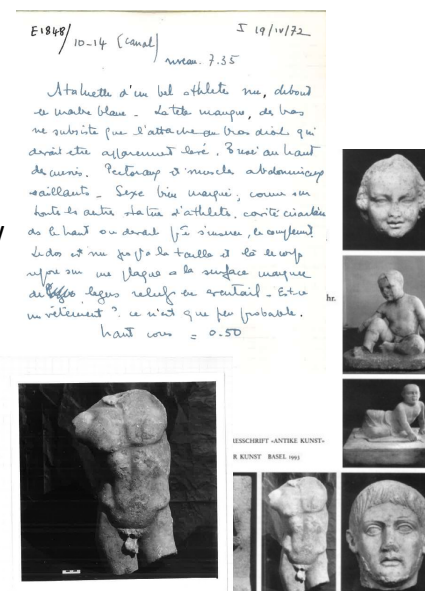 E1848/10-14 (canal) I 19/IV/72
niveau. 7.35
Statuette d'un bel athlète nu, debout
en marbre blanc. La tête manque, des bras
ne subsiste que l'attache du bras droit qui
devait être apparemment levé. Brisé au haut
de cuisses. Pectoraux et muscles abdominaux
saillants. Sexe bien marqué, comme sur
toute les autre statue d'athlète, cavité circulaire
ds le haut ou devait s'insérer, le complément.
Le dos est nu jusqu'à la taille et là le corps
sur une plaque a la surface marquée
de legers reliefs en éventail. Est-ce
un vêtement? ce n'est que peu probable.
haut cons = 0.50
hr.
ESSCHRIFT «ANTIKE KUNST»
R KUNST BASEL 1993